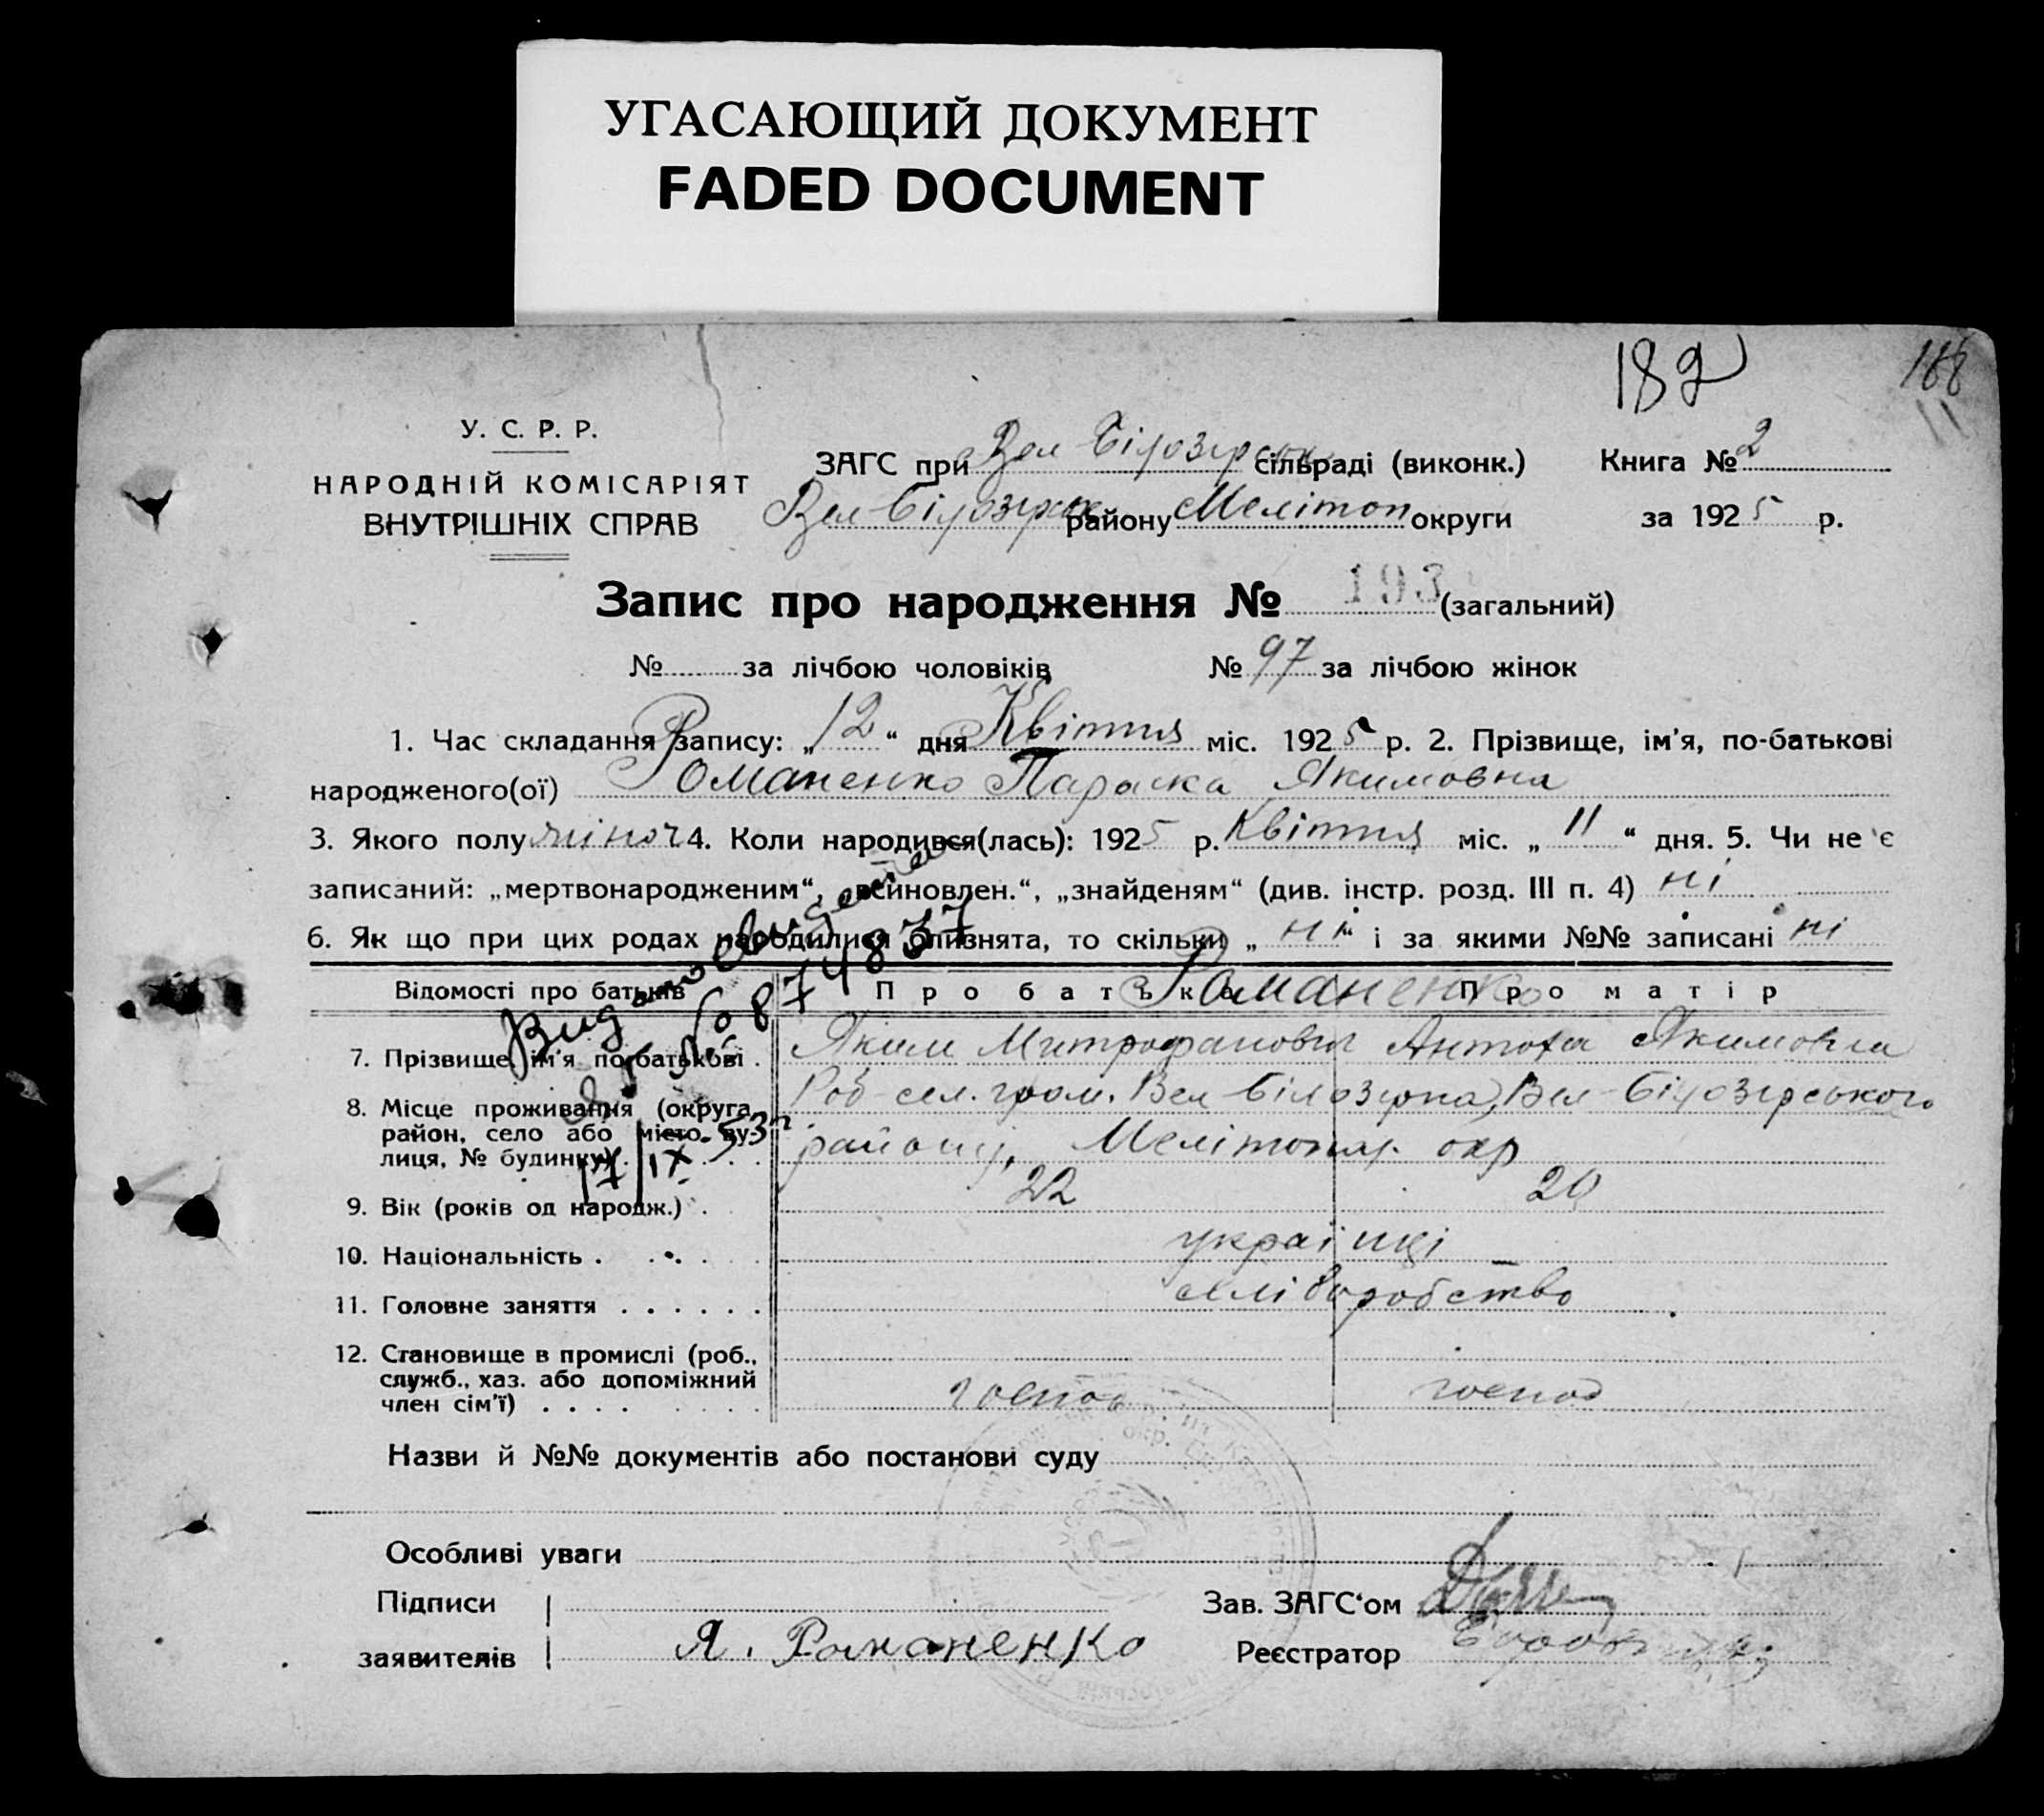 УГАСАЮЩИЙ ДОКУМЕНТ
FADED DOCUMENT
182
188
11
У. С. Р. Р.
НАРОДНІЙ КОМІСАРІЯТ
ВНУТРІШНІХ СПРАВ
ЗАГС при Вел Білозірськ сільраді (виконк.) Книга № 2
Вел-Білозірськ району Мелітоп округи за 1925 р.
Запис про народження № 193 (загальний)
№ за лічбою чоловіків № 97 за лічбою жінок
1. Час складання запису: „12“ дня Квітня міс. 1925 р. 2. Прізвище, ім'я, по-батькові
народженого(ої) Романенко Параска Якимовна
3. Якого полу жіноч 4. Коли народився(лась): 1925 р. Квітня міс. „11“ дня. 5. Чи не є
записаний: „мертвонародженим“, „всиновлен.“, „знайденям“ (див. інстр. розд. III п. 4) ні
6. Як що при цих родах народилися близнята, то скільки „ні“ і за якими №№ записані ні
Відомості про батьків Про батька Про матір
Романенко
7. Прізвище, ім'я по-батькові . Яким Митрофанович Якимовна
8. Місце проживання (округа, район, село або місто, вулиця, № будинку) . . . . Роб-сел. гром. Вел Білозірка, Вел-Білозірського
району, Мелітопол. окр
9. Вік (років од народж.) . 22 20
10. Національність . . . . українці
11. Головне заняття . . . . . . хліборобство
12. Становище в промислі (роб., служб., хаз. або допоміжний член сім'ї) . . . . господ господ
Видано
№ 874837
17/IX-53г
Назви й №№ документів або постанови суду
Особливі уваги
Підписи
заявителів Я. Романенко
Зав. ЗАГС'ом
Реєстратор